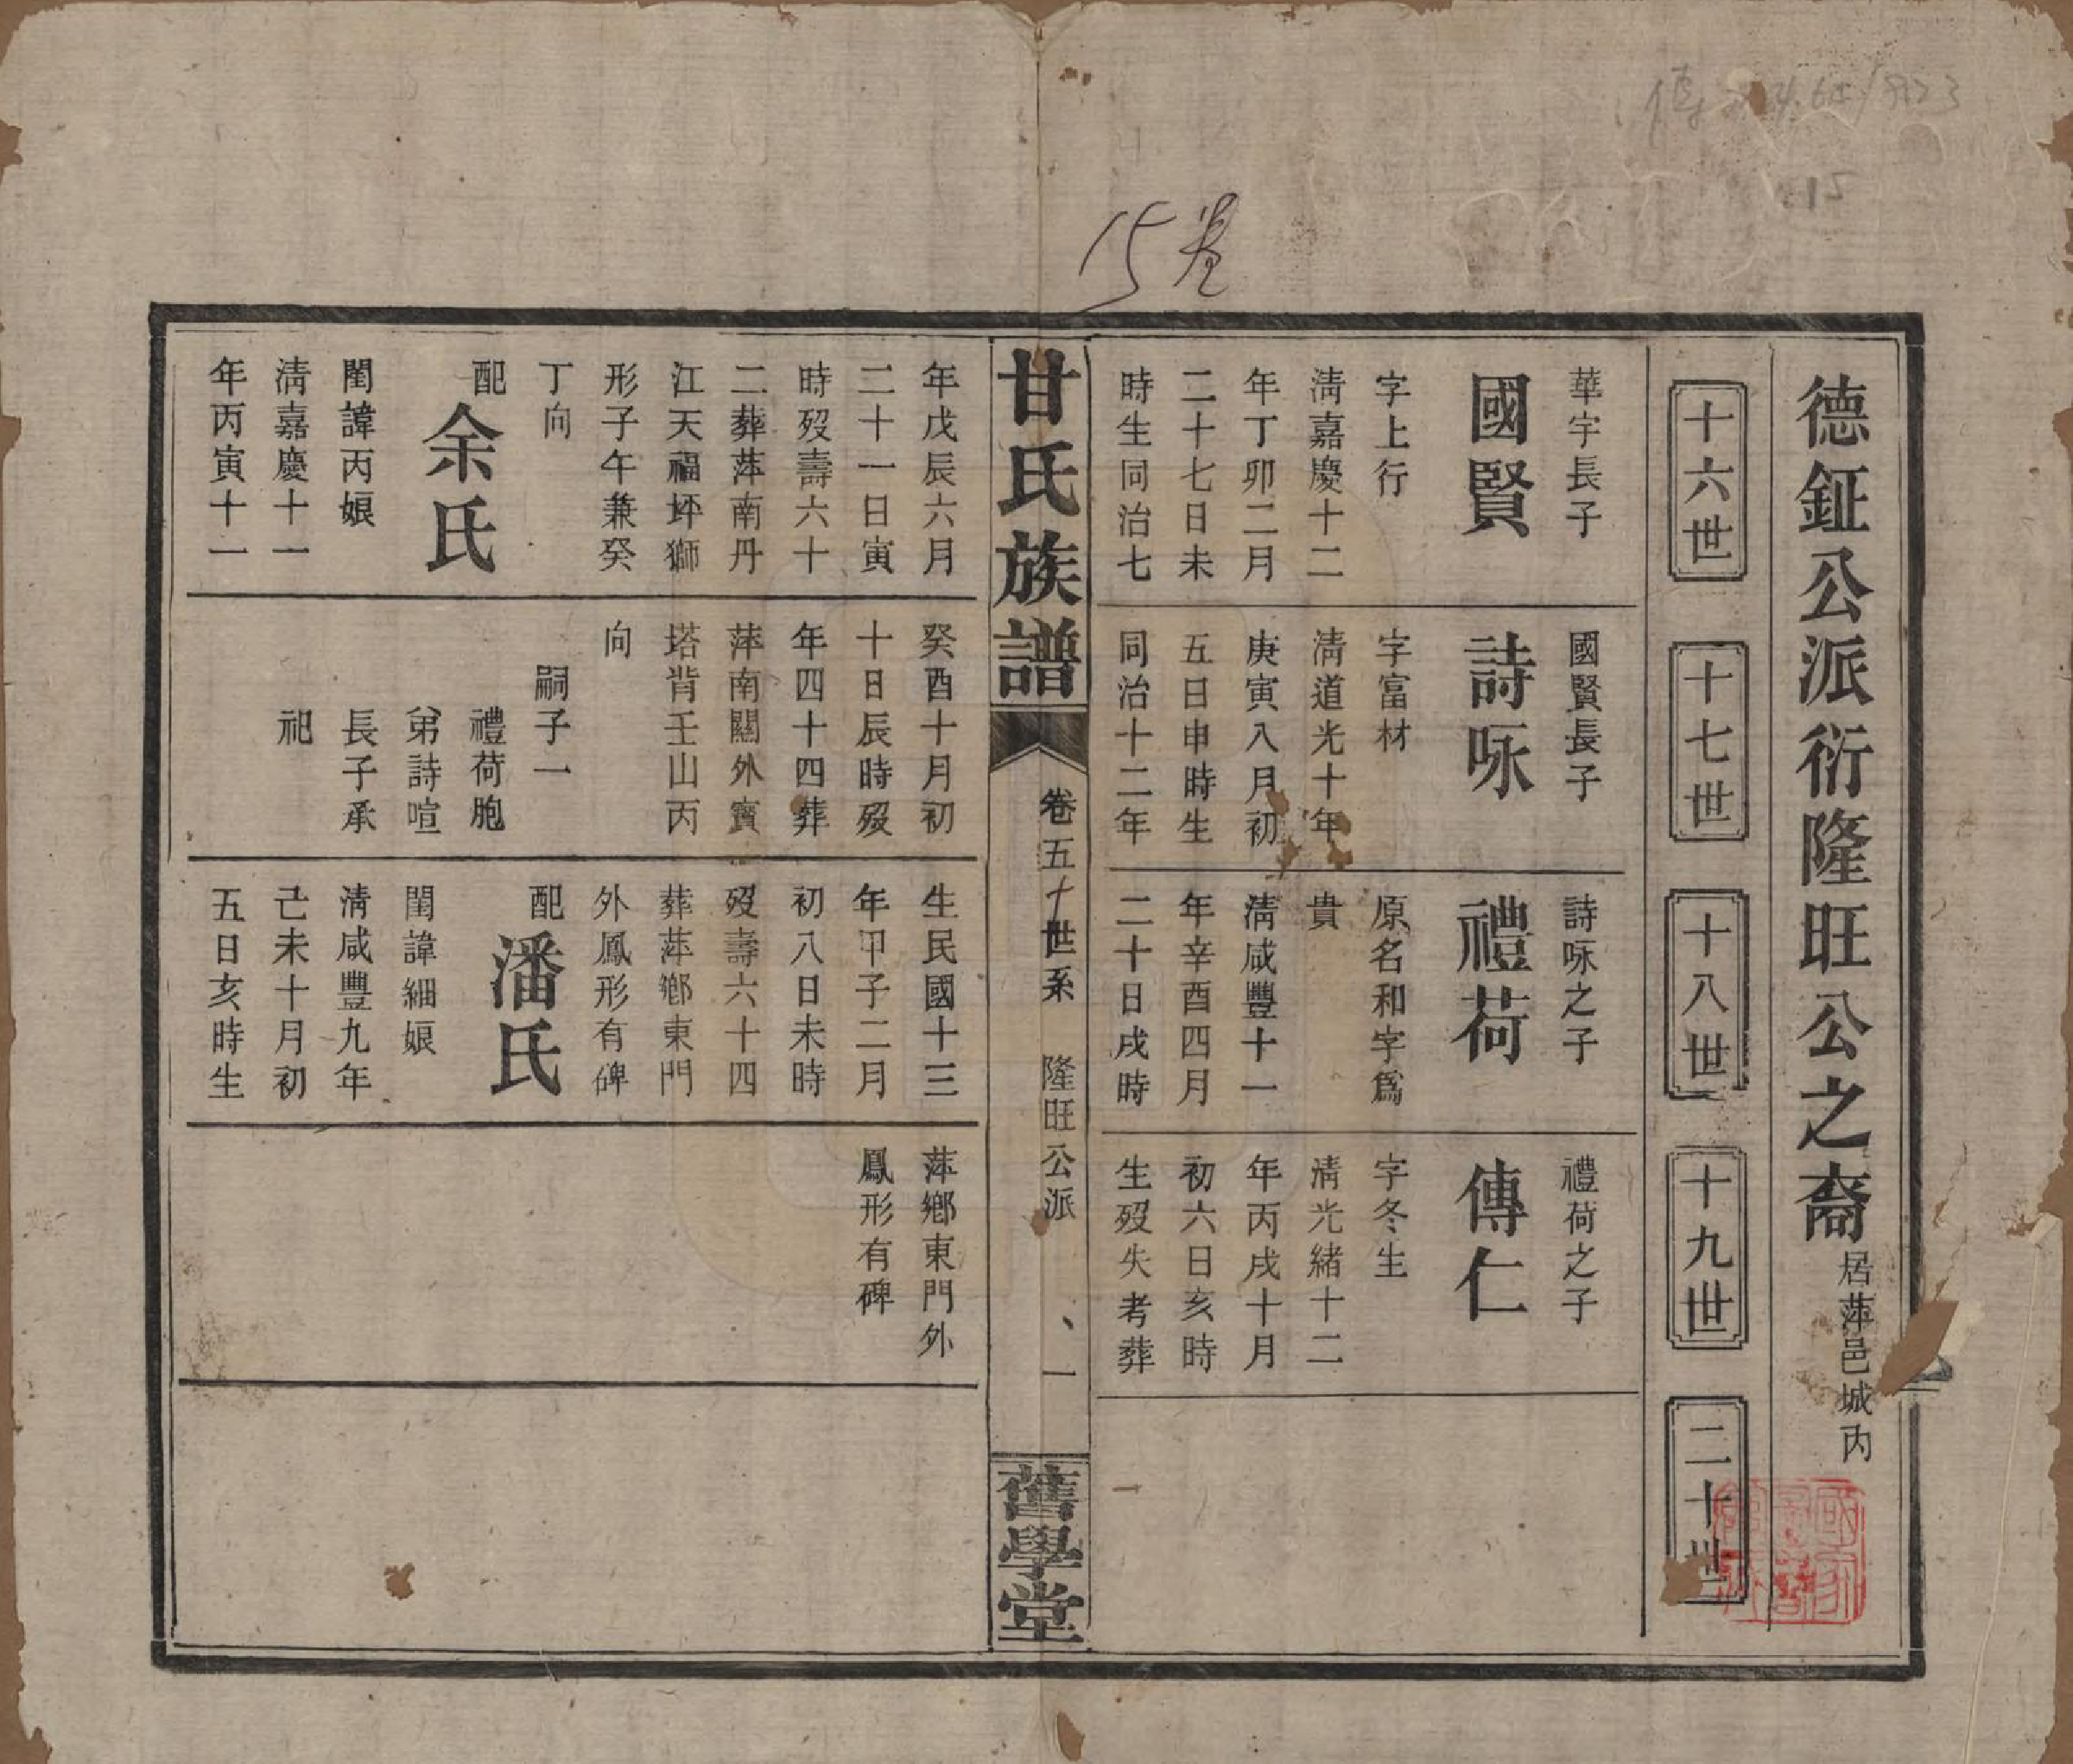 15卷
德鉦公派衍隆旺公之裔
居萍邑城内
十六世
十七世
十八世
十九世
二十世
華宇長子
國賢
字上行
淸嘉慶十二
年丁卯二月
二十七日未
時生同治七
國賢長子
詩咏
字富材
淸道光十年
庚寅八月初
五日申時生
同治十二年
詩咏之子
禮荷
原名和字爲
貴
淸咸豐十一
年辛酉四月
二十日戌時
禮荷之子
傳仁
字冬生
淸光緒十二
年丙戌十月
初六日亥時
生歿失考葬
甘氏族譜
卷五十世系
隆旺公派
一
舊學堂
年戊辰六月
二十一日寅
時歿壽六十
二葬萍南丹
江天福坪獅
形子午兼癸
丁向
配
余氏
閨諱丙娘
淸嘉慶十一
年丙寅十一
癸酉十月初
十日辰時歿
年四十四葬
萍南關外寶
塔背壬山丙
向
嗣子一
禮荷胞
弟詩喧
長子承
祀
生民國十三
年甲子二月
初八日未時
歿壽六十四
葬萍鄉東門
外鳳形有碑
配
潘氏
閨諱細娘
淸咸豐九年
己未十月初
五日亥時生
萍鄉東門外
鳳形有碑